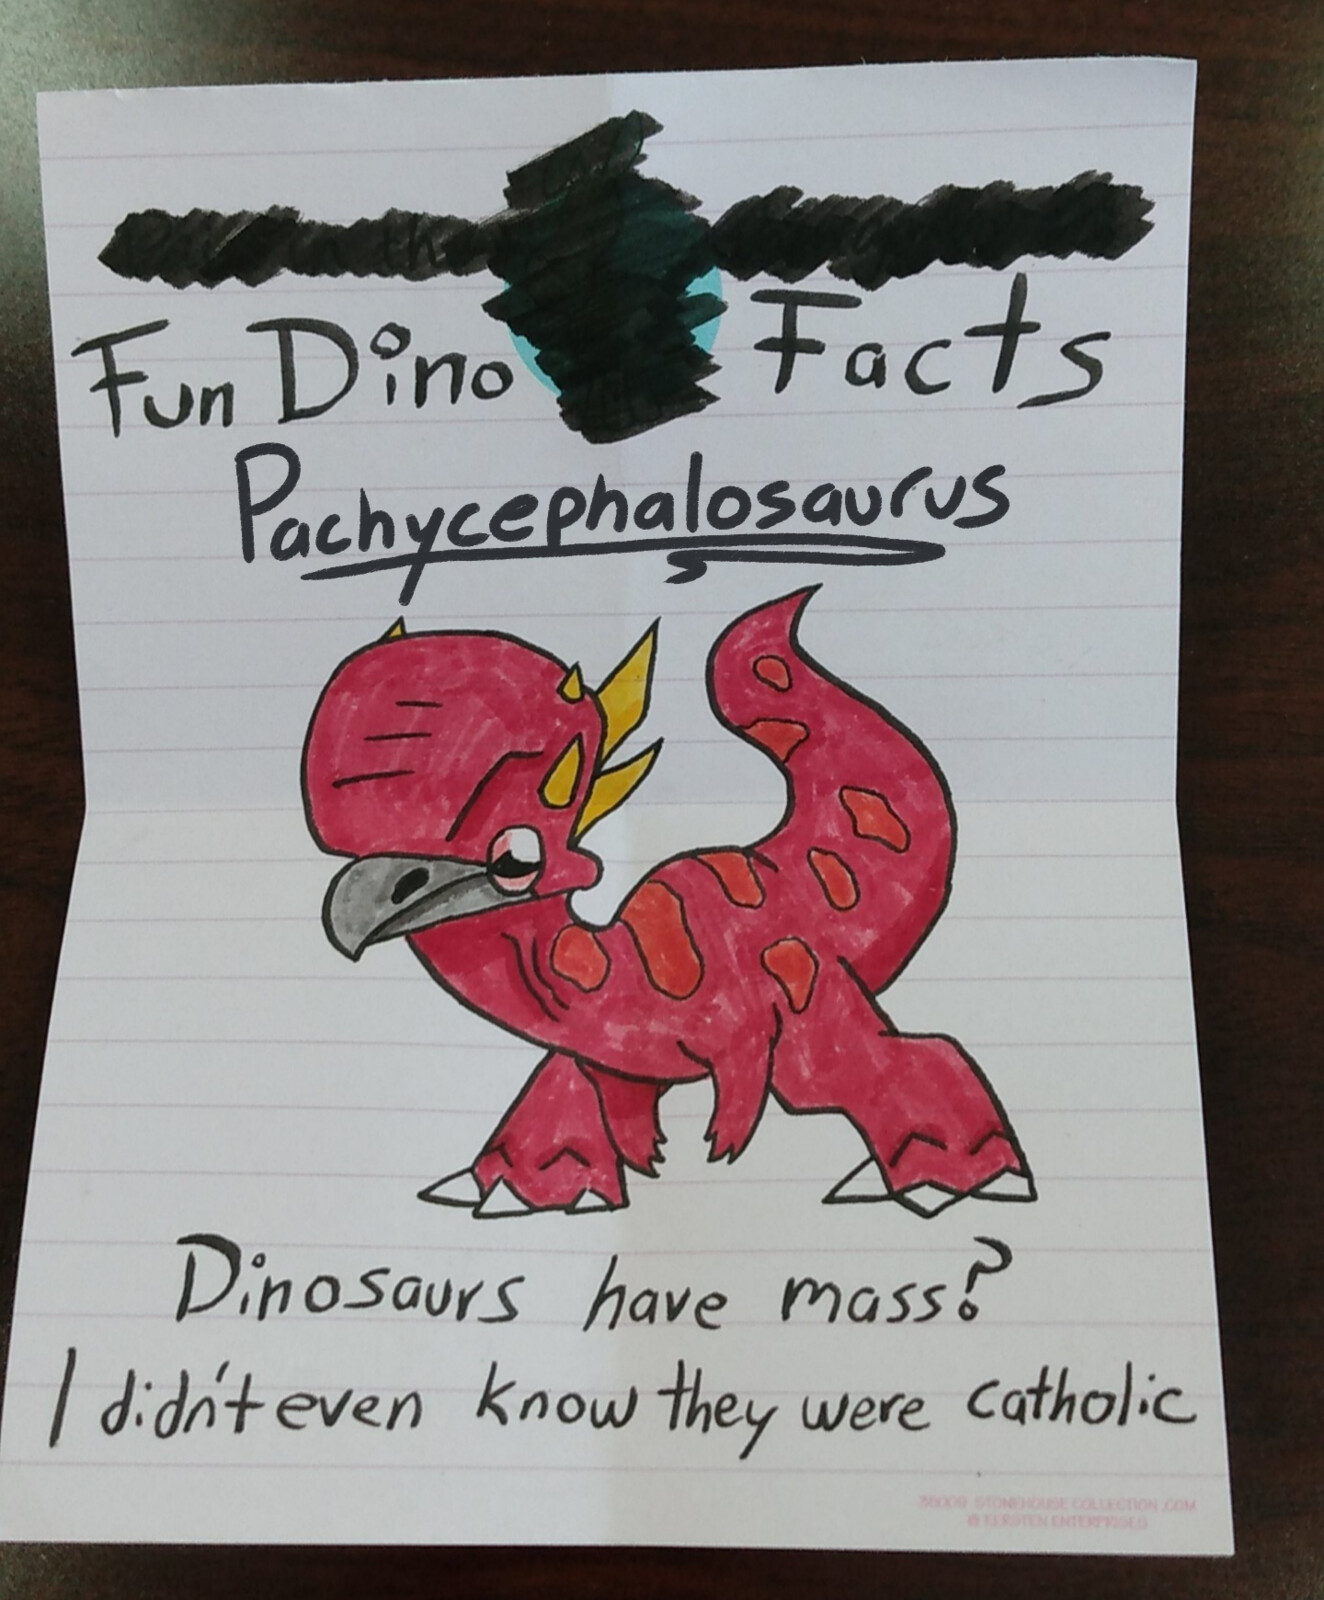 Fun Dino Facts
Pachycephalosaurus
Dinosaurs have mass?
I didn't even know they were catholic
STONEHOUSE COLLECTION .COM
© KERSTEN ENTERPRISES